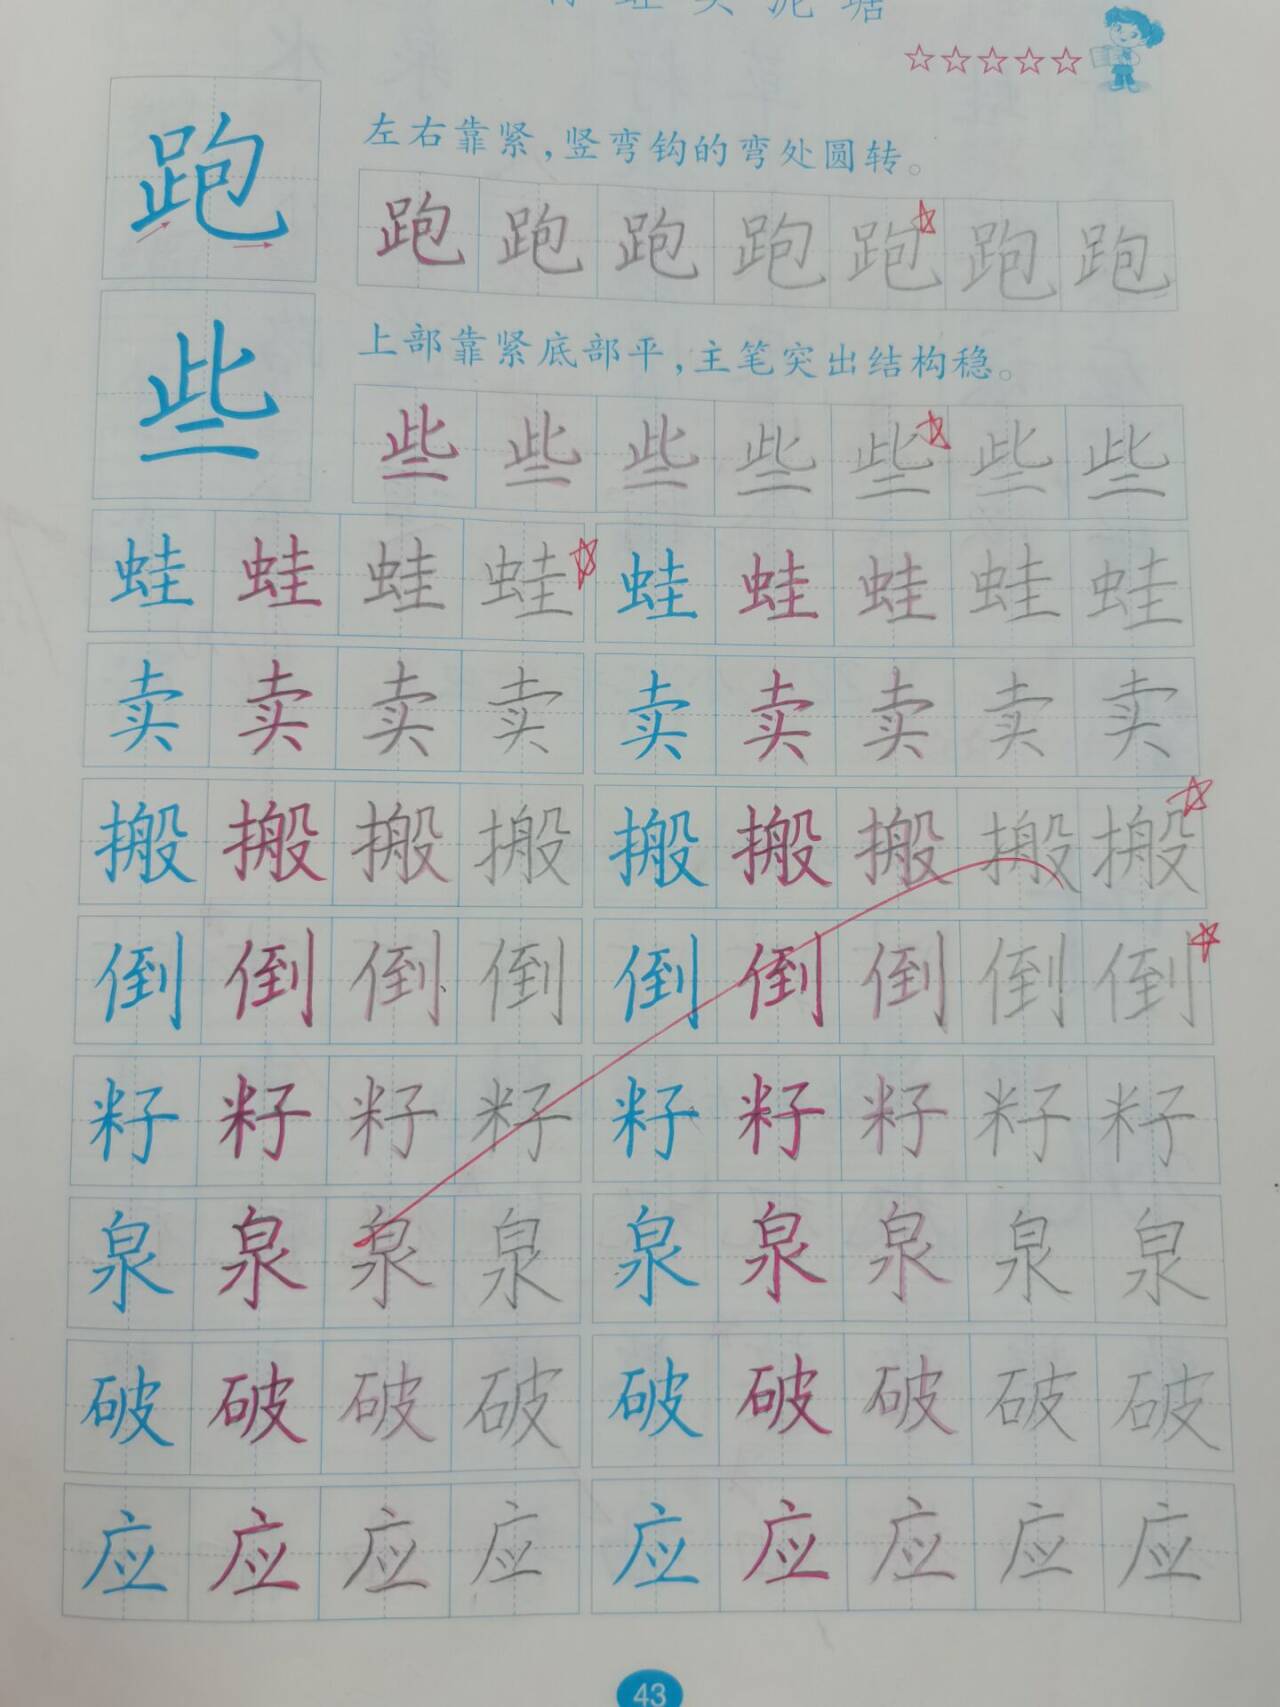 青蛙卖泥塘
跑
左右靠紧，竖弯钩的弯处圆转。
跑跑跑跑跑跑跑
些
上部靠紧底部平，主笔突出结构稳。
些些些些些些些
蛙蛙蛙蛙蛙蛙蛙蛙蛙
卖卖卖卖卖卖卖卖卖
搬搬搬搬搬搬搬搬搬
倒倒倒倒倒倒倒倒倒
籽籽籽籽籽籽籽籽籽
泉泉泉泉泉泉泉泉泉
破破破破破破破破破
应应应应应应应应应
43